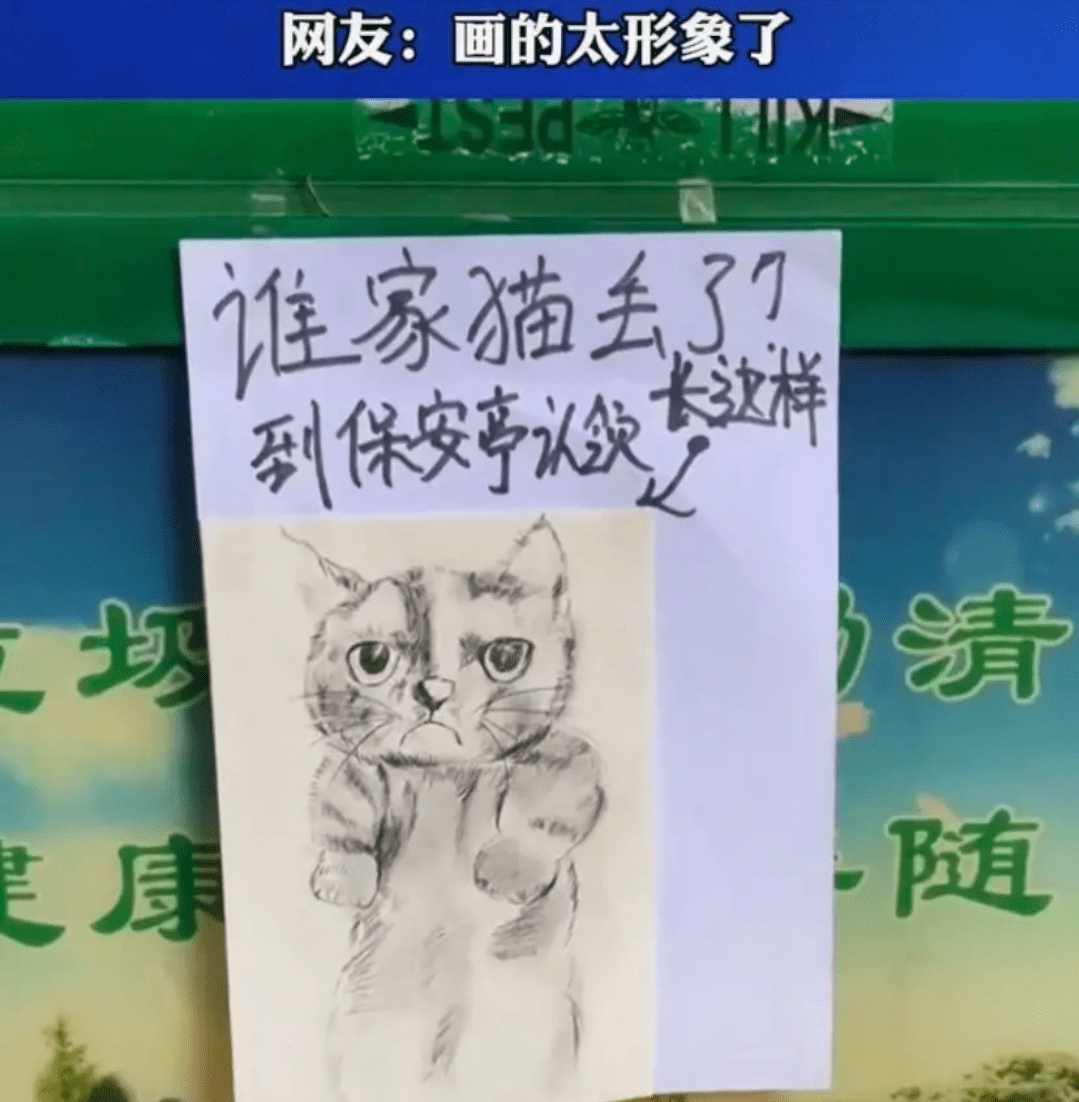 网友：画的太形象了
KILL PEST
谁家猫丢了？
长这样
到保安亭认领
圾 清
健康 随